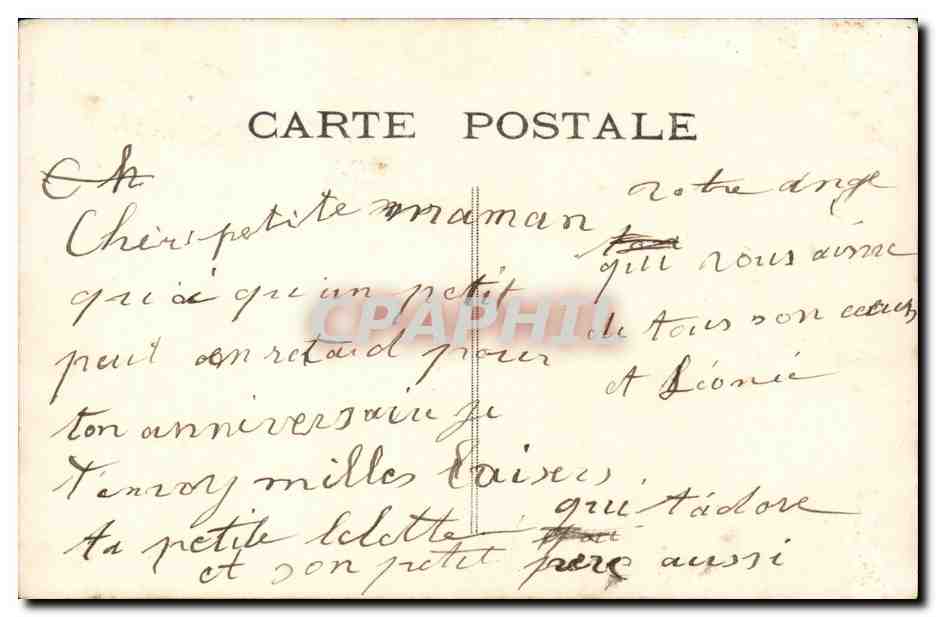 CARTE POSTALE
Ch
Chère petite maman
qui à qu'un petit
peut en retard pour
ton anniversaire je
t'envoy milles baisers
ta petite lolotte
qui t'adore
et son petit pere aussi
notre ange
qui nous aime
de tous son cœur
et Léonie
CPAPHIL